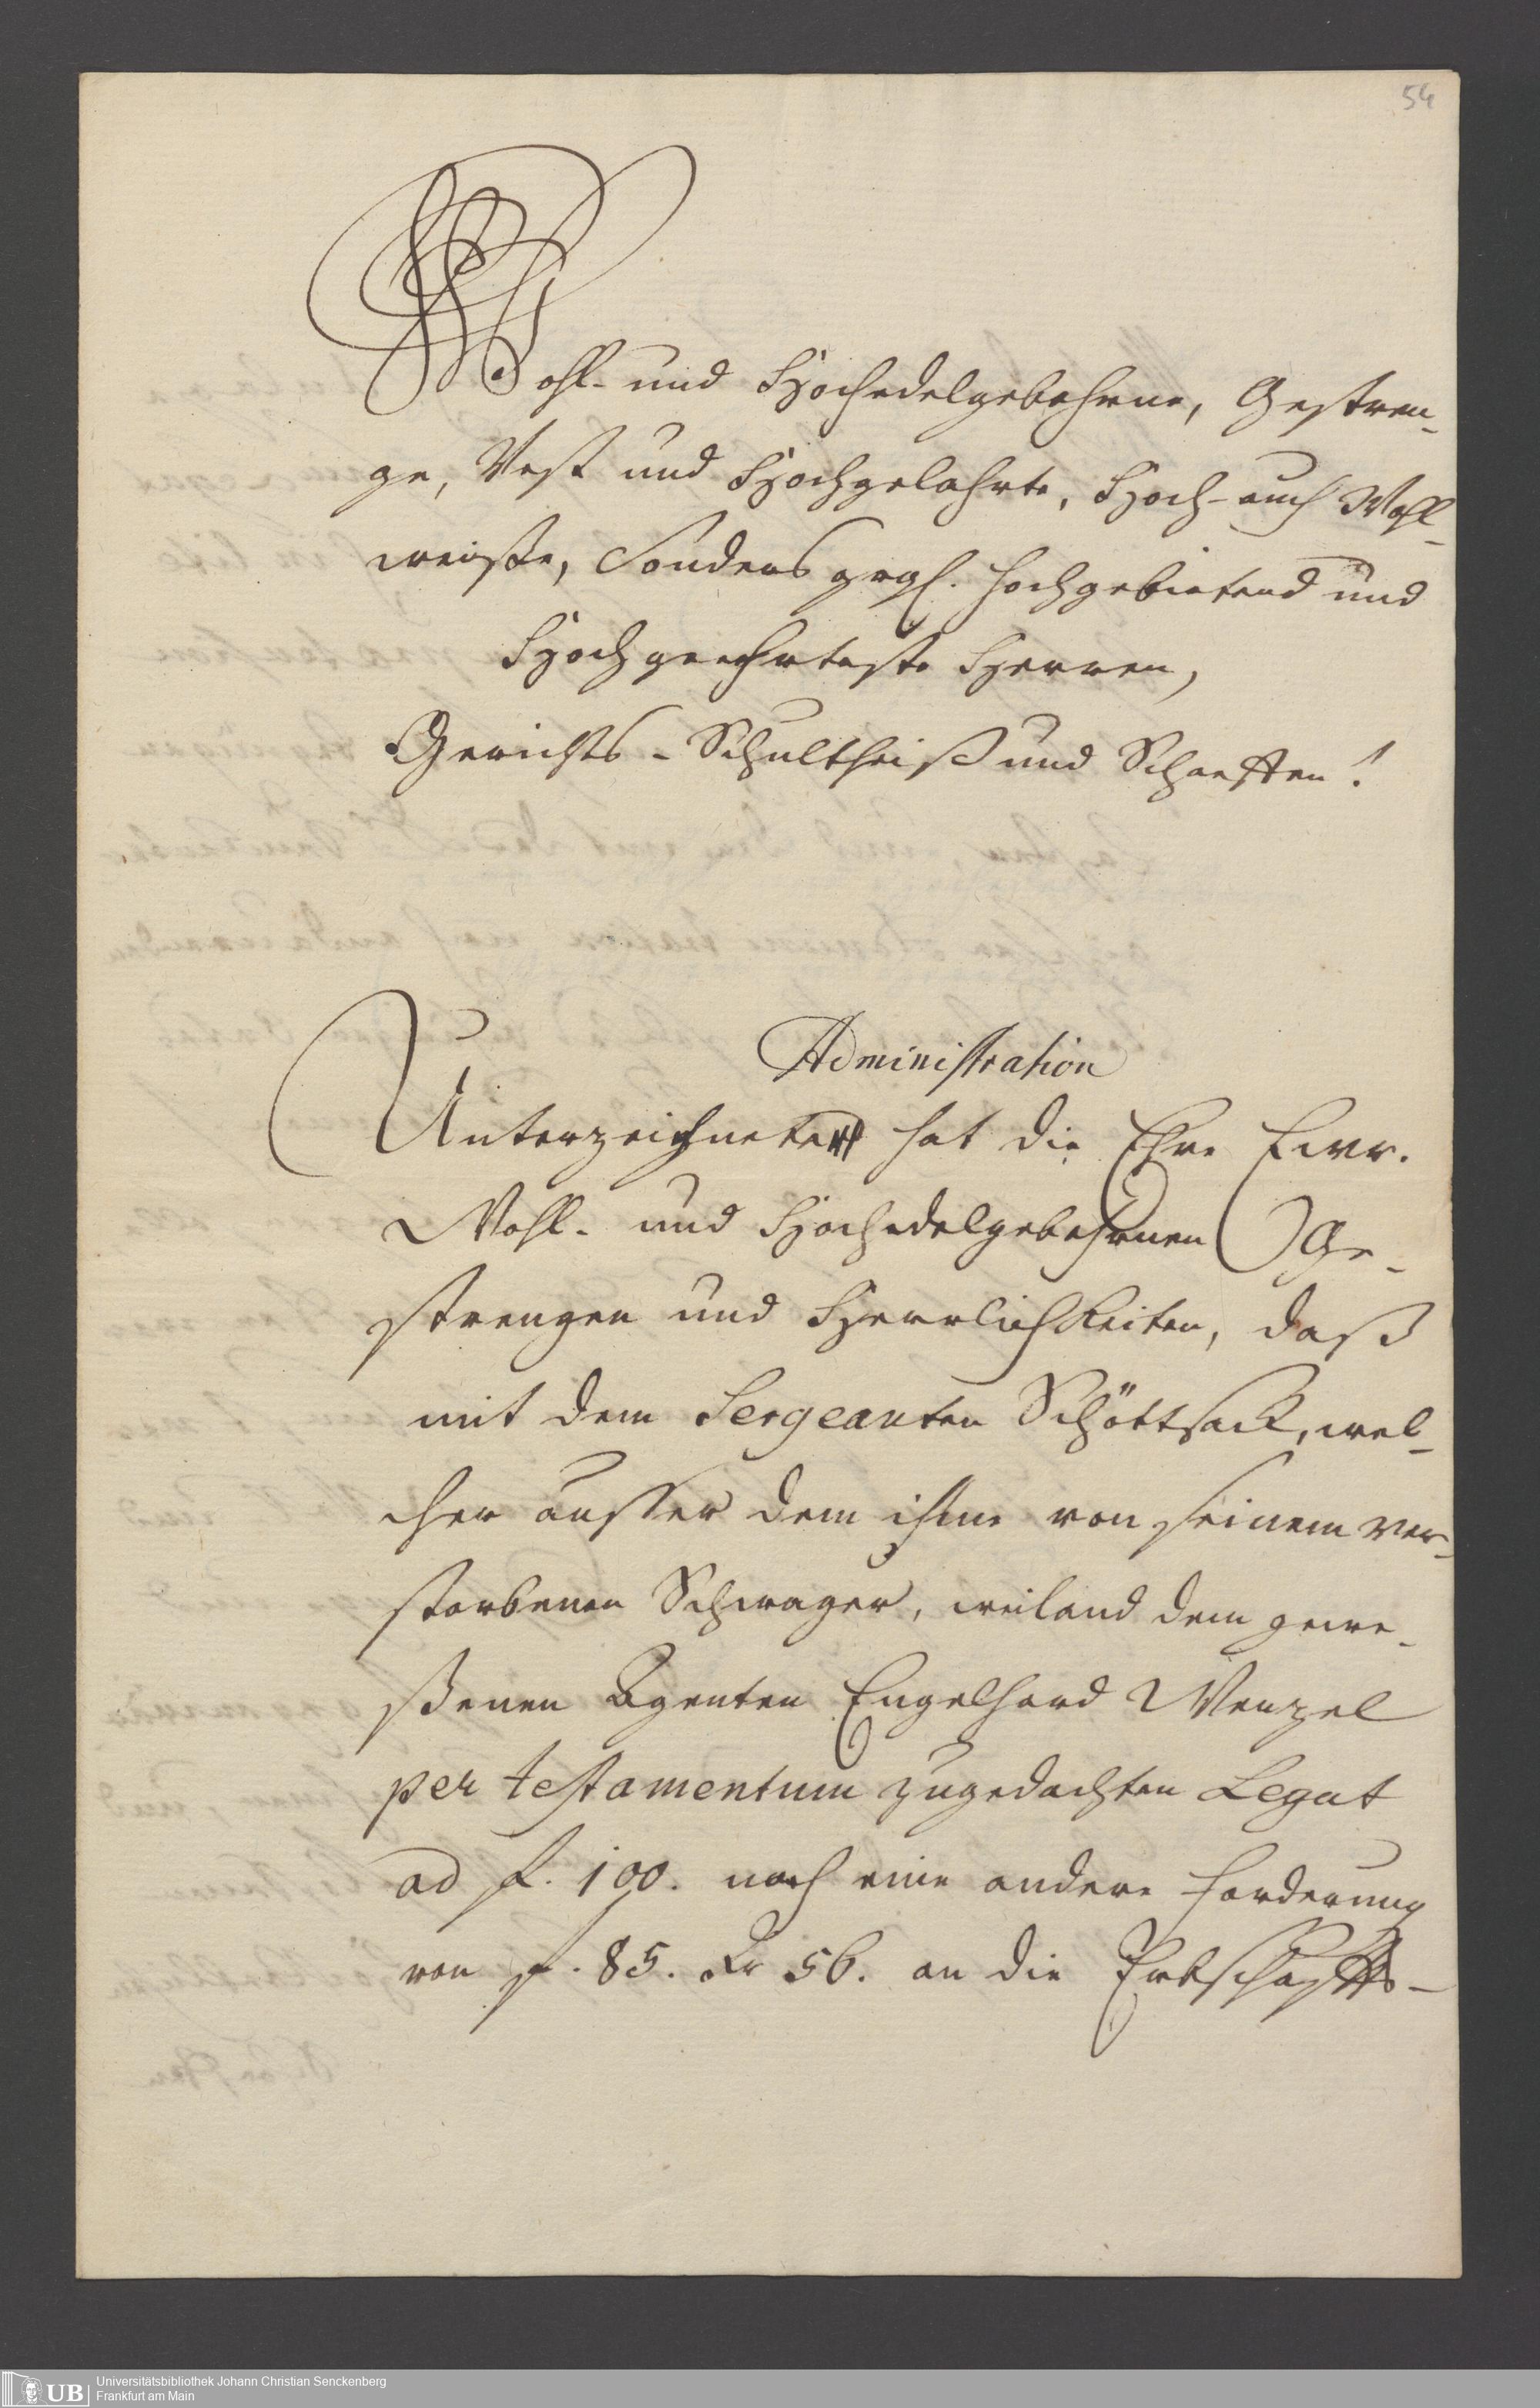 54
Wohl- und Hochedelgebohrne, Gestren-
ge, Vest und Hochgelahrte, Hoch- auch Wohl-
weiße, Sonders grgl. hochgebietend und
Hochgeehrteste Herren,
Gerichts-Schultheiß und Schoeffen!
Administration
Unterzeichnete hat die Ehre Ewr.
Wohl- und Hochedelgebohrnen Ge-
strengen und Herrlichkeiten, daß
mit dem Sergeanten Schöttsack, wel-
cher ausser dem ihme von seinem ver-
storbenen Schwager, weiland dem gewe-
ßenen Agenten Engelhard Wenzel
per testamentum zugedachten Legat
ad f. 100. noch eine andere Forderung
von f. 85. Xr 56. an die Erbschaffts-
UB
Universitätsbibliothek Johann Christian Senckenberg
Frankfurt am Main